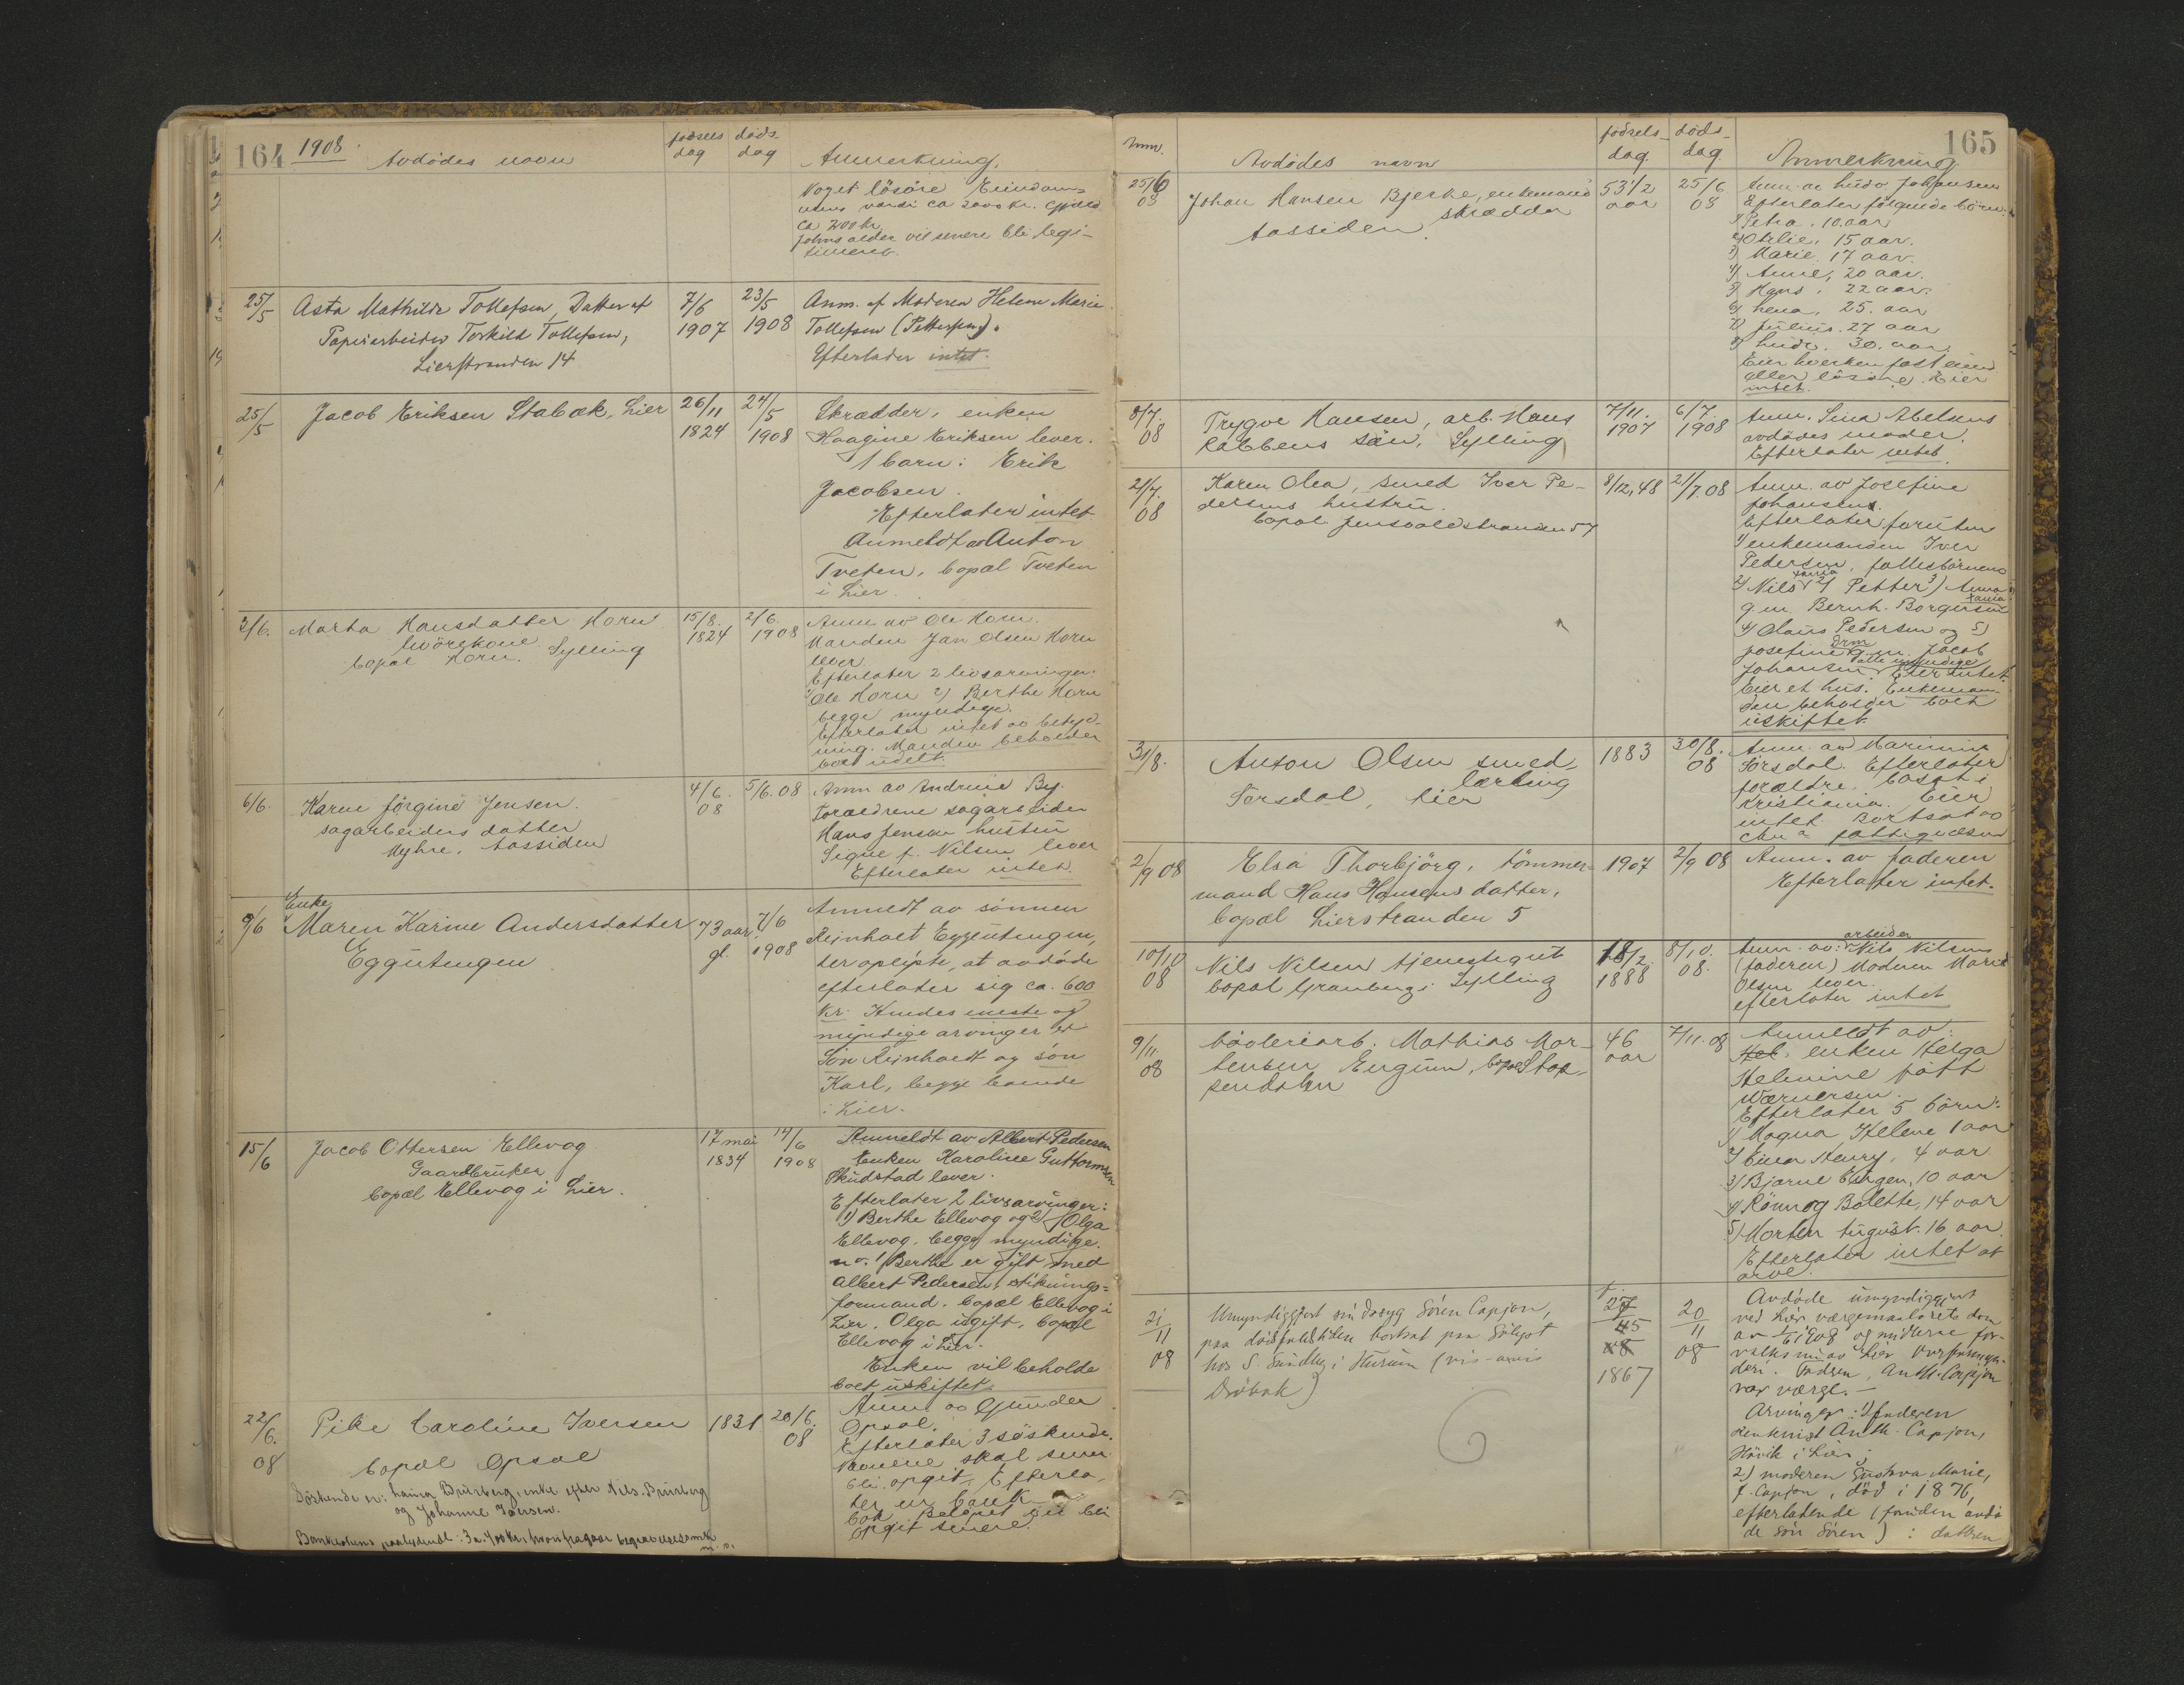 164 1908. Avdödes navn
födsels dag
döds dag
Anmerkning.
Noget lösöre Eiendom-
mens værdi ca 2000 kr. Gjæld
ca 200 kr.
Johns alder vil senere bli legi-
timeret.
25/5 Asta Mathilde Tollefsen, Datter af
Papirarbeider Torkild Tollefsen,
Lierstranden 14
7/6 1907
23/5 1908
Anm. af Moderen Helene Marie
Tollefsen (Pettersen).
Efterlader intet.
25/5 Jacob Eriksen Stabæk, Lier
26/11 1824
24/5 1908
Skrædder, enken
Haagine Eriksen lever.
1 barn: Erik
Jacobsen.
Efterlater intet.
Anmeldt av Anton
Tveten, bopæl Tveten
i Lier.
3/6. Marta Hansdatter Horn
bopæl Horn. Sylling
15/8. 1824
2/6. 1908
Anm. av Ole Horn.
Manden Jan Olsen Horn
lever.
Efterlater 2 livsarvinger:
1) Ole Horn 2) Berthe Horn
begge myndige.
Efterlater intet av betyd-
ning. Manden beholder
boet udelt.
6/6. Karen Jörgine Jensen.
sagarbeiders datter
Myhre. Tassiden
4/6. 08
5/6. 08
Anm av Andrine By.
Forældrene sagarbeider
Hans Jensen hustru
Signe f. Nilsen lever
Efterlater intet.
9/6 Enke
Maren Karine Andersdatter
Eggutengen
73 aar gl.
7/6 1908
Anmeldt av sönnen
Reinholt Eggutengen,
der oplyste, at avdöde
efterlater sig ca. 600
kr. Hendes eneste og
myndige arvinger er
Sön Reinholdt og sön
Karl, begge boende
i Lier.
15/6 Jacob Ottersen Ellevog
Gaardbruker
bopæl Ellevog i Lier.
17 mai 1834
14/6 1908
Anmeldt av Albert Pedersen
Enken Karoline Guttormsen
Skudstad lever.
Efterlater 2 livsarvinger:
1) Berthe Ellevog og 2) Olga
Ellevog, begge myndige.
nr. 1 Berthe er gift med
Albert Pedersen,
formand. bopæl Ellevog i
Lier. Olga ugift, bopæl
Ellevog i Lier.
Enken vil beholde
boet uskiftet.
22/6. 08 Pike Caroline Iversen
bopæl Opsal
1831
20/6. 08
Anm av Gunder
Opsal.
Efterlater 3 söskende.
Navnene skal senere
bli opgit. Efterla-
ter en bank-
bok. Belöpet vil bli
opgit senere.
Söskende er: enke efter Nils
og Johanne Iversen.
165
Anm.
Avdödes navn
födsels-dag.
döds-dag.
Anmerkning.
25/6 08 Johan Hansen Bjerke, enkemand
skrædder
Tassiden.
53 1/2 aar
25/6 08
Anm. av Johansen
Efterlater fölgende börn:
1) Petra. 10 aar
2) Otilie. 15 aar.
3) Marie. 17 aar.
4) Anne, 20 aar.
5) Hans. 22 aar.
6) Lena, 25. aar
7) Julius. 27 aar
8) 30. aar.
Eier hverken fast eiend
eller lösöre. Eier
intet.
8/7. 08 Trygve Hansen, arb. Hans
Rabbens sön, Sylling
7/11. 1907
6/7. 1908
Anm. Lina Abelsens
avdödes moder.
Efterlater intet.
21/7. 08 Karen Olea, smed Iver Pe-
dersens hustru.
bopæl Jensvoldstranden 57
8/12, 48
21/7. 08
Anm. av Josefine
Johansens.
Efterlater foruten
1) enkemanden Iver
Pedersen, fællesbörnene
2) Nils 2) Petter 3) Anna
g.m. Bernh. Borgersen
4) Olaus Pedersen og 5)
Josefine g.m. Jacob
Johansen. alle myndige Efter intet.
Eier et hus. Enkeman-
den beholder boet
uskiftet.
31/8. Anton Olsen smed
lærling
Sörsdal, Lier
1883
30/8. 08
Anm. av
Sörsdal. Efterlater
forældre, bosat i
Kristiania. Eier
intet. Bortsat av
2/9 08 Elsa Thorbjörg, tömmer-
mand Hans Hansens datter,
bopæl Lierstranden 5
1907
2/9 08
Anm. av faderen
Efterlater intet.
10/10 08 Nils Nilsen tjenestegut
bopæl Granberg i Sylling
18/2 1888
8/10. 08.
Anm. av: arbeider Nils Nilsen
(faderen) Moderen Marie
Olsen lever.
efterlater intet
9/11. 08 Mathias Mor-
tensen Engum, bopæl Stop-
pendalen
46 aar
7/11. 08
Anmeldt av:
Hel. enken Helga
Helmine född
Wærnersen.
Efterlater 5 börn:
1) Magna Helene 1 aar
2) Einar Henry, 4 aar
3) Bjarne Edgen, 10 aar
4) Rönnog Bolette, 14 aar
5) Morten August. 16 aar
Efterlater intet at
arve.
21/11 08 Umyndiggjort sindssyg Sören Capjon,
paa dödsfaldstiden bortsat paa
hos S. Sundby i Hurum (vis-avis
Dröbak)
1867
20/11 08
Avdöde umyndiggjort
ved Lier værgemaalsrets dom
av 1908 og midlerne for-
valtes av Lier Overformyn-
deri. Faderen, Anth. Capjon
var værge. —
Arvinger: 1) faderen
Anth. Capjon,
Hövik i Lier;
2) moderen Gustava Marie,
f. Capjon, död i 1876,
efterlatende (foruden avdö
de sön Sören): datteren